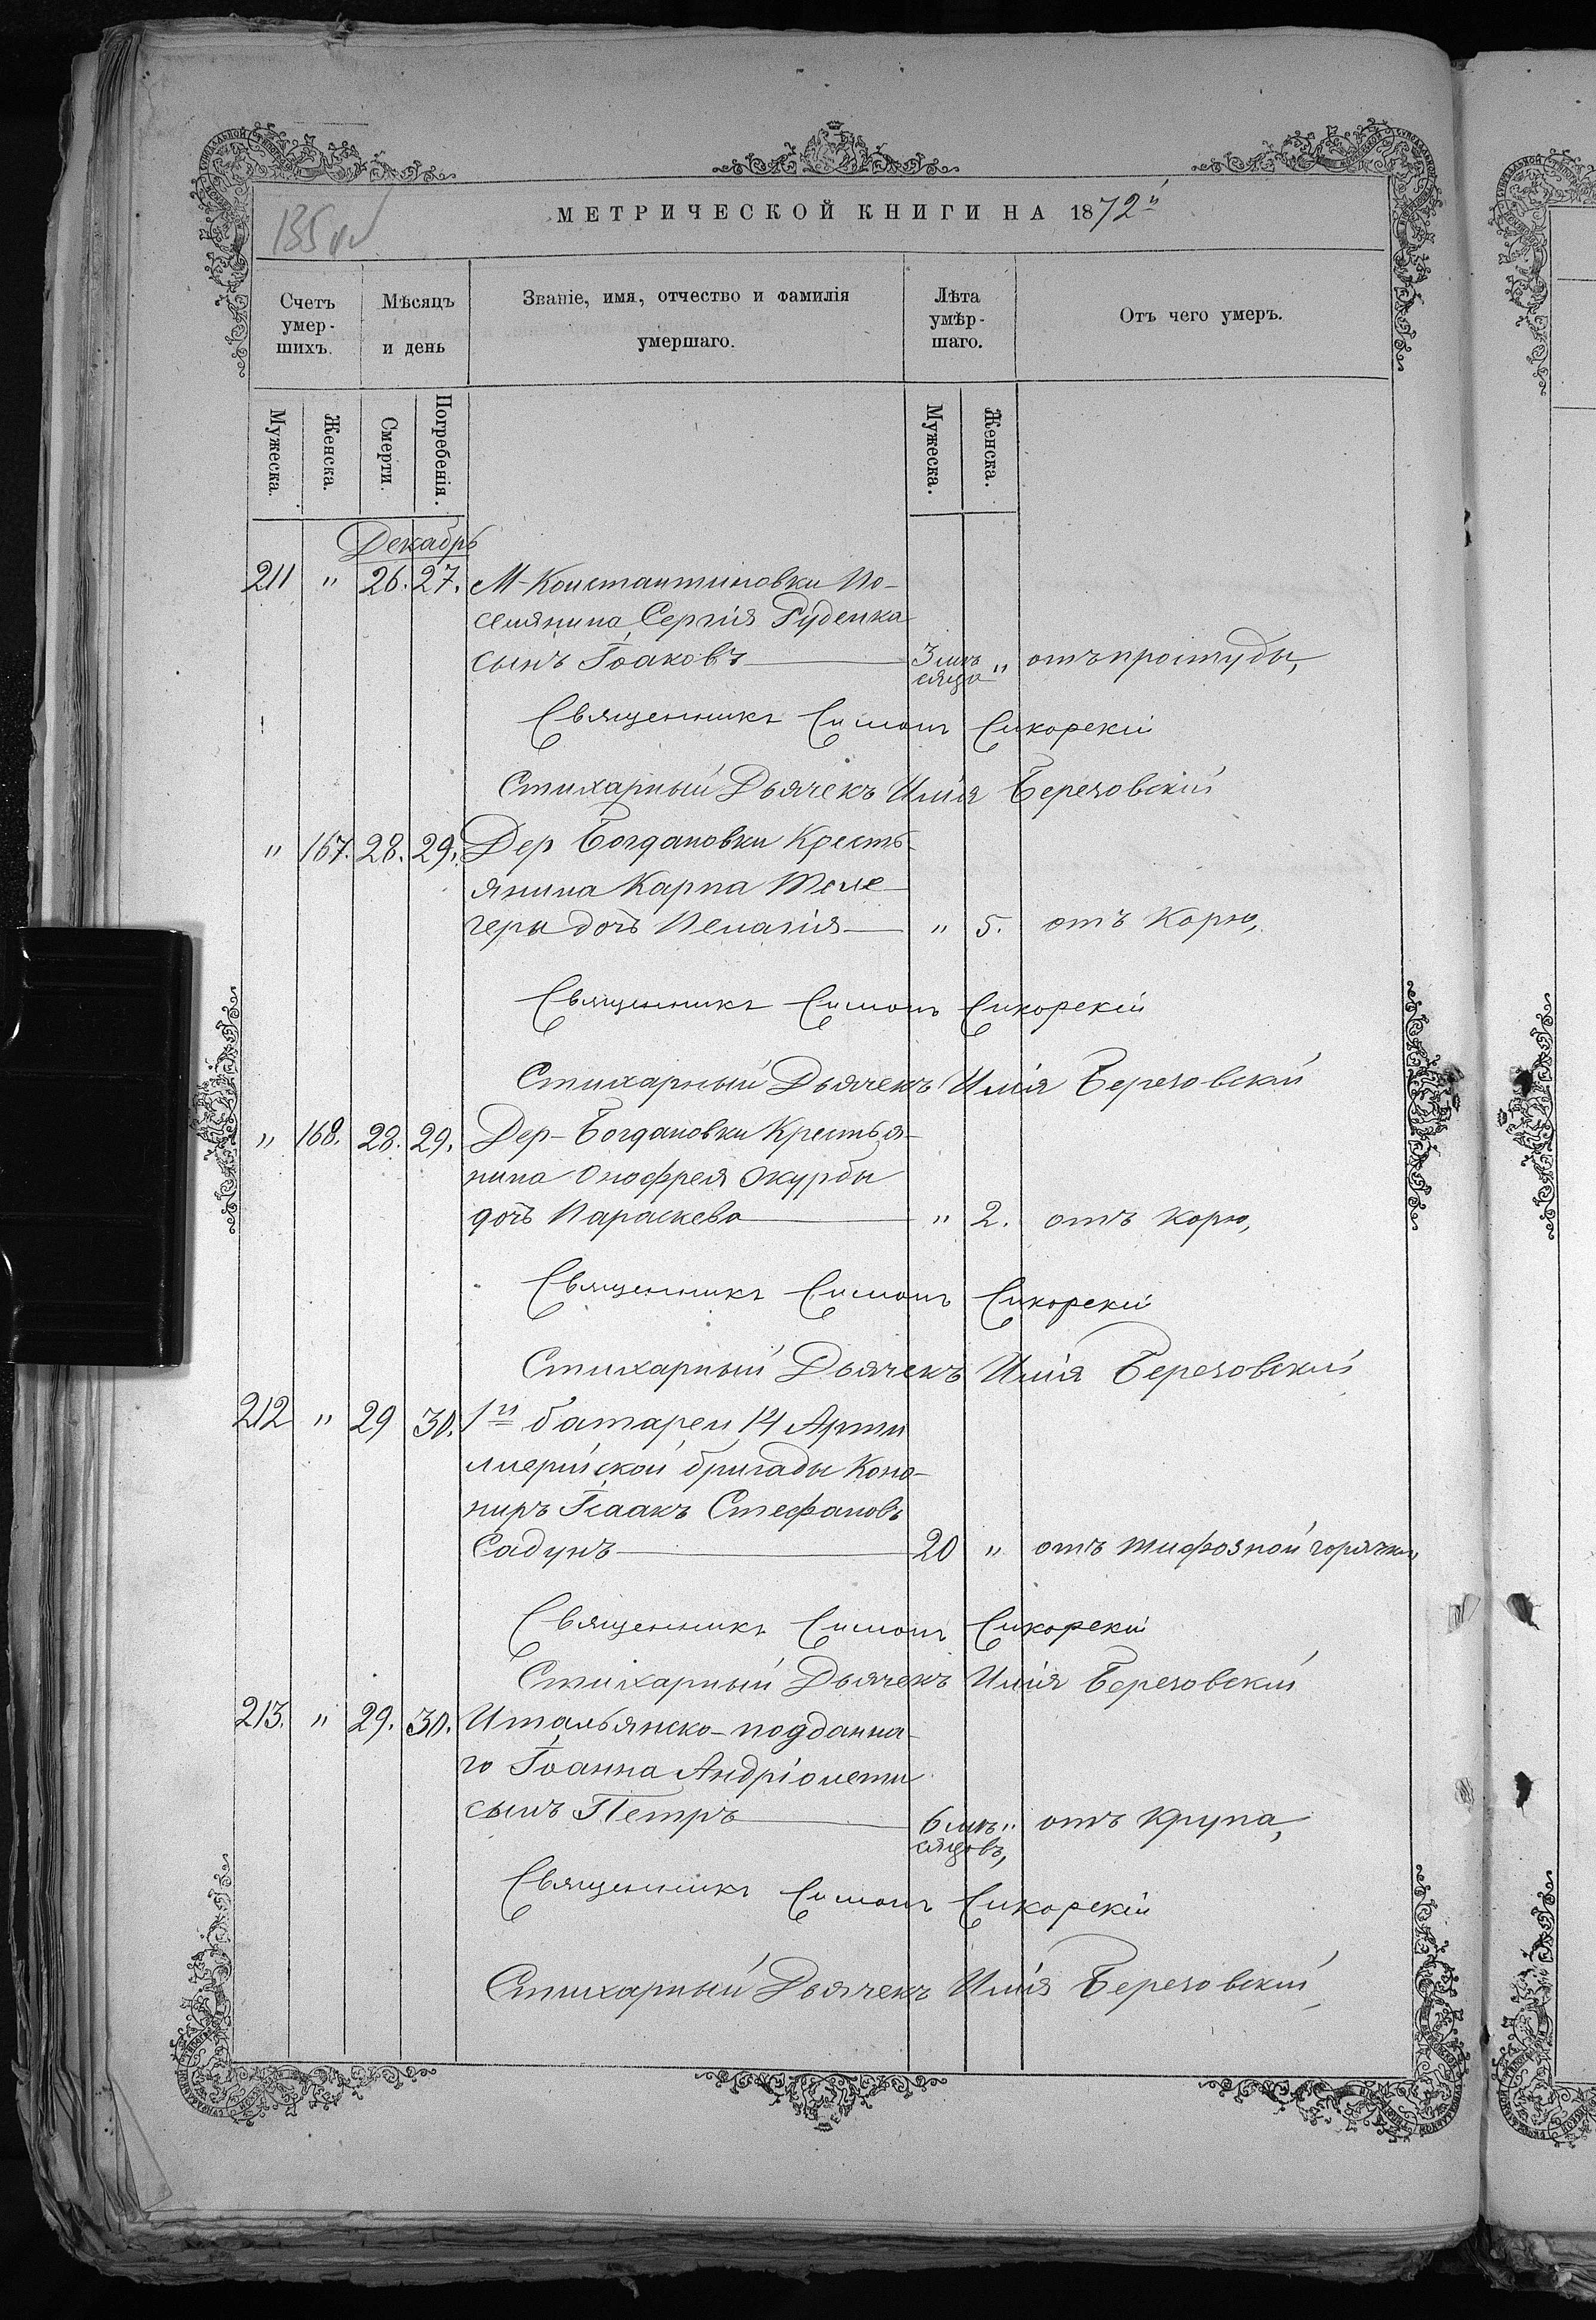 МЕТРИЧЕСКОЙ КНИГИ НА 1872й
135 об
Счетъ умер-шихъ.
Мѣсяцъ и день
Званіе, имя, отчество и фамилія умершаго.
Лѣта умѣр-шаго.
Отъ чего умеръ.
Мужеска. Женска. Смерти. Погребенія. Мужеска. Женска.
Декабрь
211 " 26. 27. М-Константиновки По-
селянина Сергія Руденка
сынъ Іоаковъ 3 мѣ- " отъ простуды,
сяца
Священникъ Симонъ Сикорскій
Стихарный Дьячекъ Илія Березовскій
" 167. 28. 29. Дер Богдановки Кресть-
янина Карпа Теле-
геры дочь Пелагія " 5. отъ Корю,
Священникъ Симонъ Сикорскій
Стихарный Дьячекъ Илія Березовскій
" 168. 28. 29. Дер-Богдановки Крестья-
нина Онофрея Журбы
дочь Параскева " 2. отъ корю,
Священникъ Симонъ Сикорскій
Стихарный Дьячекъ Илія Березовскій
212 " 29 30. 1й батареи 14 Арти
лерійской бригады Кано-
ниръ Ісаакъ Стефановъ
Садунъ 20 " отъ тифозной горячки
Священникъ Симонъ Сикорскій
Стихарный Дьячекъ Илія Березовскій
213. " 29. 30. Итальянско-подданна-
го Іоанна Андріолети
сынъ Петръ 6 мѣ- " отъ Крупа,
сяцовъ,
Священникъ Симонъ Сикорскій
Стихарный Дьячекъ Илія Березовскій